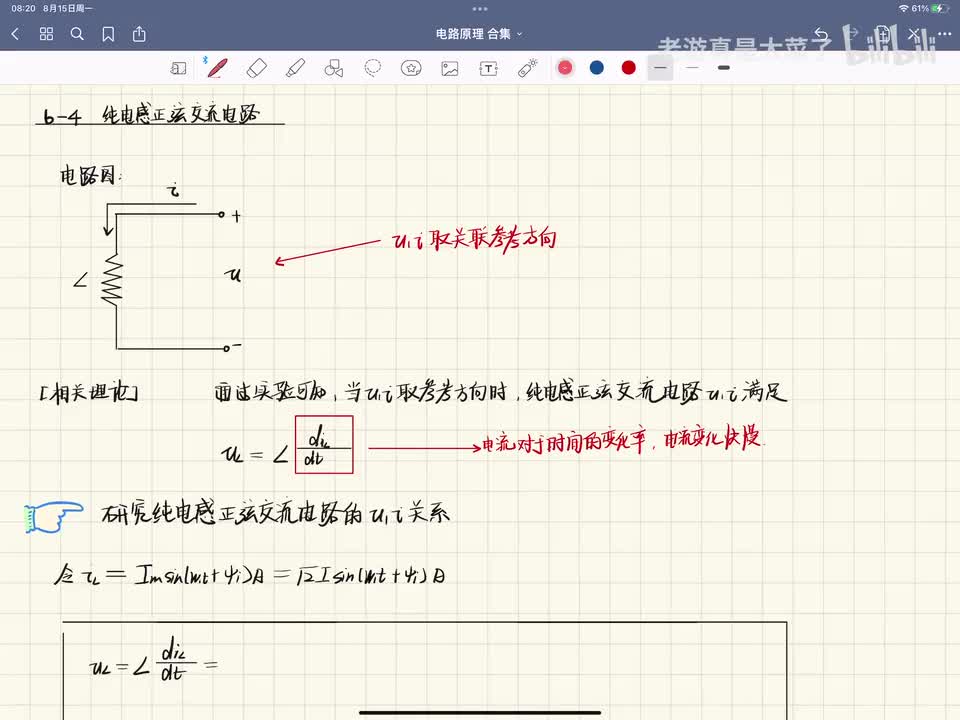 08:20 8月15日周一
61%
电路原理 合集
老游真是太菜了 bilibili
6-4 纯电感正弦交流电路
电路图:
i
+
u,i 取关联参考方向
L
u
-
[相关理论] 通过实验可知,当u,i取参考方向时,纯电感正弦交流电路u,i满足
u_L = L di_L/dt
电流对于时间的变化率,电流变化快慢.
研究纯电感正弦交流电路的u,i关系
令 i_L = I_m sin(ω_i t + ψ_i)A = √2 I sin(ω_i t + ψ_i)A
u_L = L di_L/dt =